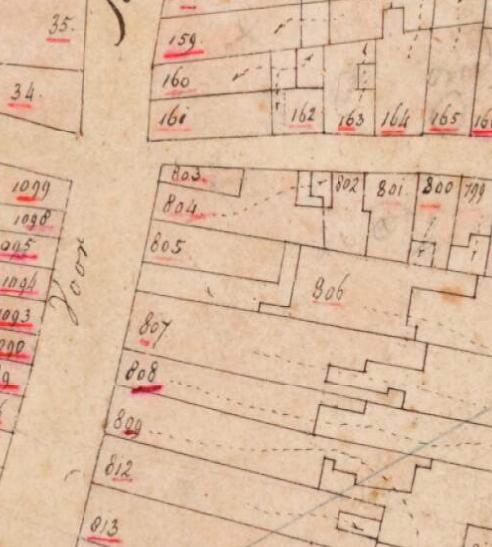 35.
34.
159.
160
161
162
163
164
165
803.
804.
805
806
802
801
800
799
1099
1098
1095
1094
1093
Voor
807
808
809
812
813